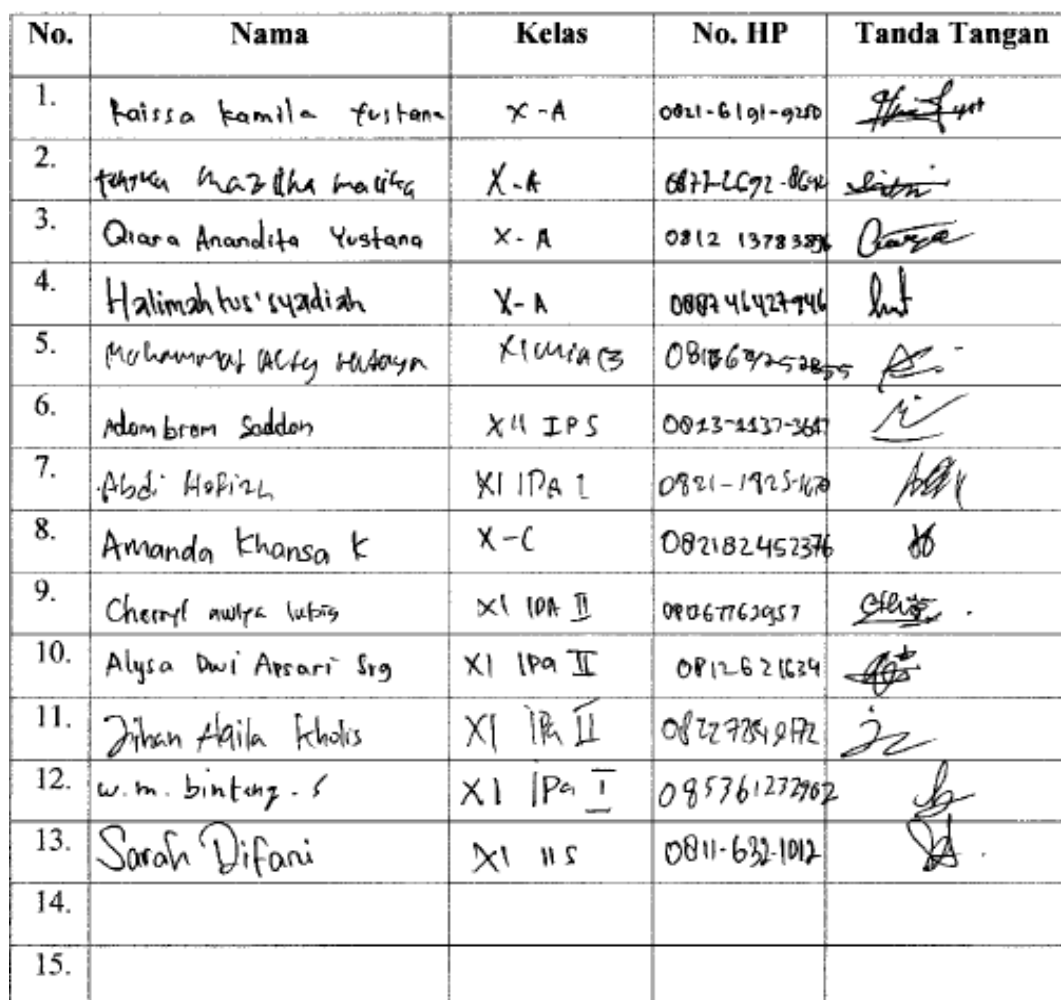 No. Nama Kelas No. HP Tanda Tangan
1. Raissa Kamila Yustana X-A 0821-6191-9250
2. X-A
3. Qiara Anandita Yustana X-A 0812 1378
4. Halimahtus'syadiah X-A 0887 46427946
5. Mohammat XI MIA 3
6. Adam bram Saddan XII IPS 0813-1137-3617
7. Abdi Hafizh XI IPA 1 0821-1925-1670
8. Amanda Khansa K X-C 082182452376
9. Cherryl aulya lubis XI IPA II 081367763957
10. Alysa Dwi Apsari Srg XI IPa II 0812621634
11. Jihan Aqila Kholis XI IPa II
12. w.m. bintang. S XI IPa I 085361232902
13. Sarah Difani XI IIS 0811-632-1012
14.
15.